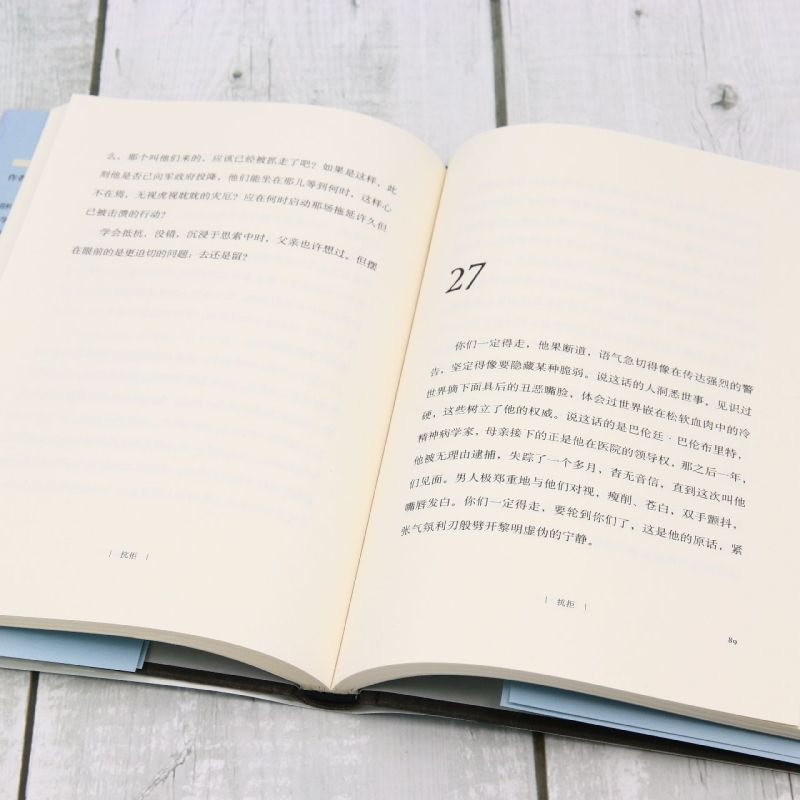 么，那个叫他们来的，应该已经被抓走了吧？如果是这样，此
刻他是否已向军政府投降，他们能坐在那儿等到何时，这样心
不在焉，无视虎视眈眈的灾厄？应在何时启动那场拖延许久但
已被击溃的行动？
学会抵抗，没错，沉浸于思索中时，父亲也许想过。但摆
在眼前的是更迫切的问题：去还是留？
| 抗拒 |
27
你们一定得走，他果断道，语气急切得像在传达强烈的警
告，坚定得像要隐藏某种脆弱。说这话的人洞悉世事，见识过
世界摘下面具后的丑恶嘴脸，体会过世界嵌在松软血肉中的冷
硬，这些树立了他的权威。说这话的是巴伦廷·巴伦布里特，
精神病学家，母亲接下的正是他在医院的领导权，那之后一年，
他被无理由逮捕，失踪了一个多月，杳无音信，直到这次叫他
们见面。男人极郑重地与他们对视，瘦削、苍白，双手颤抖，
嘴唇发白。你们一定得走，要轮到你们了，这是他的原话，紧
张气氛利刃般劈开黎明虚伪的宁静。
| 抗拒 |
89